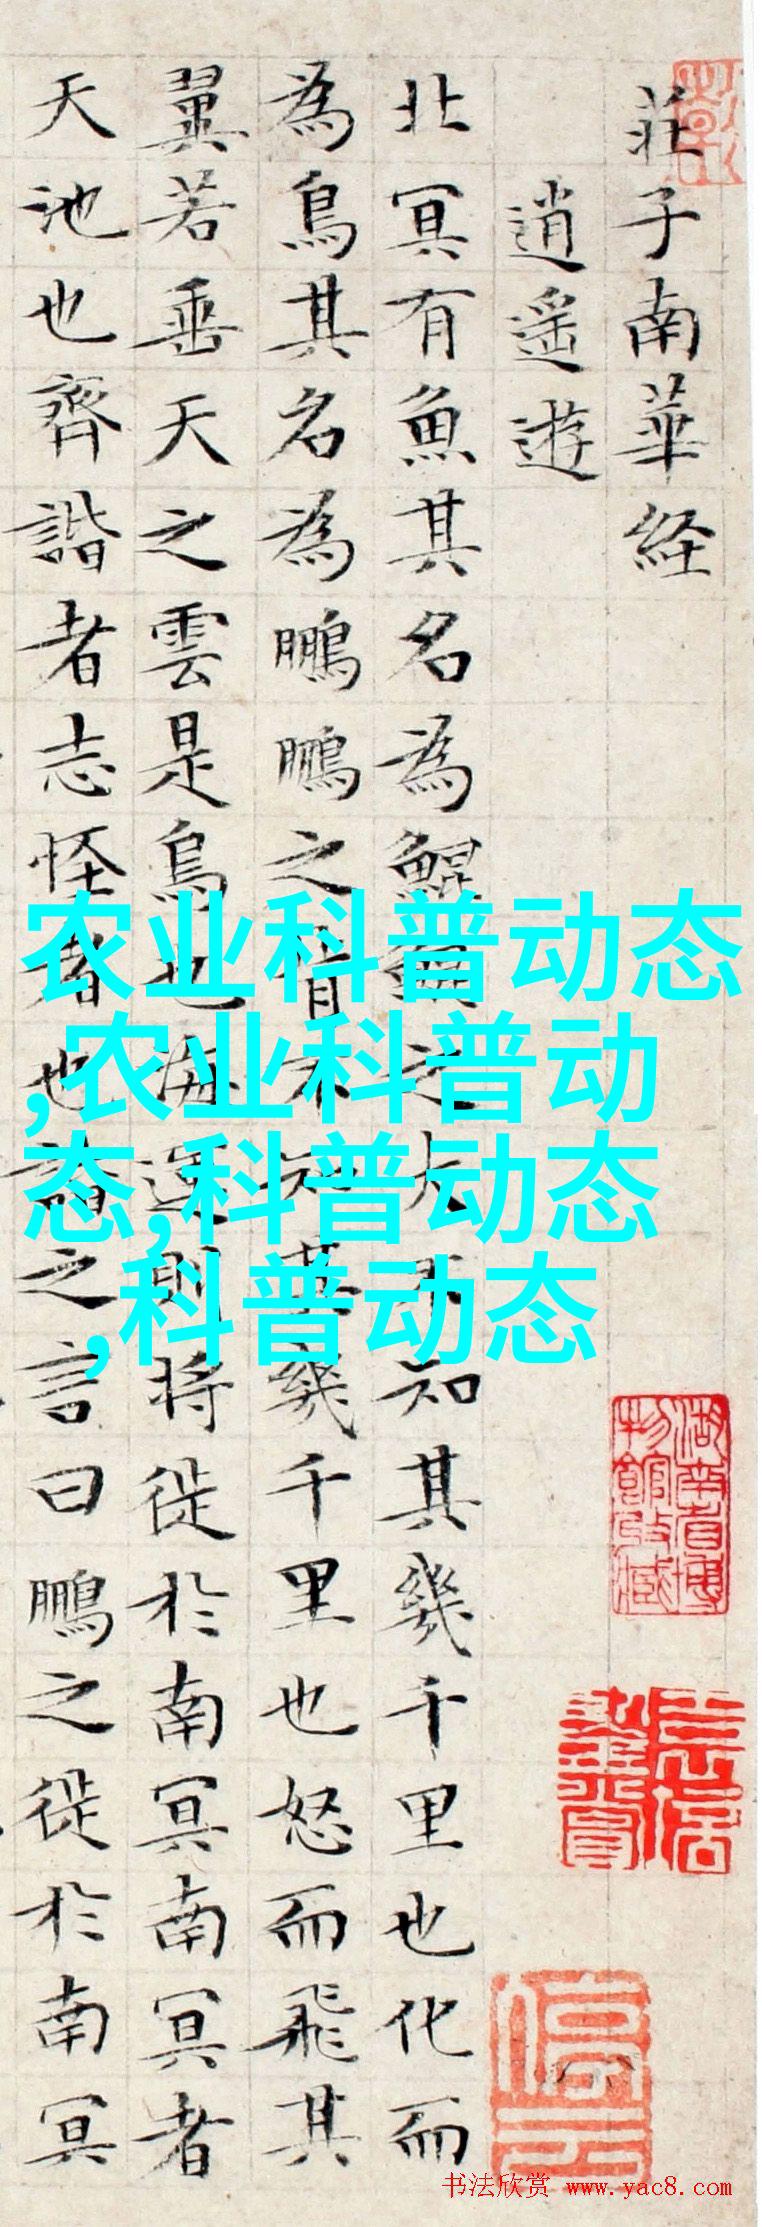 莊子南華経
逍遥遊
北冥有魚其名為鯤鯤之大不知其幾千里也化而
為鳥其名為鵬鵬之背不知其幾千里也怒而飛其
翼若垂天之雲是鳥也海運則将徙於南冥南冥者
天池也齊諧者志怪者也諧之言曰鵬之徙於南冥
农业科普动态
,农业科普动
态,科普动态
,科普动态
湖南省博
物館收藏
停云
书法欣赏 www.yac8.com